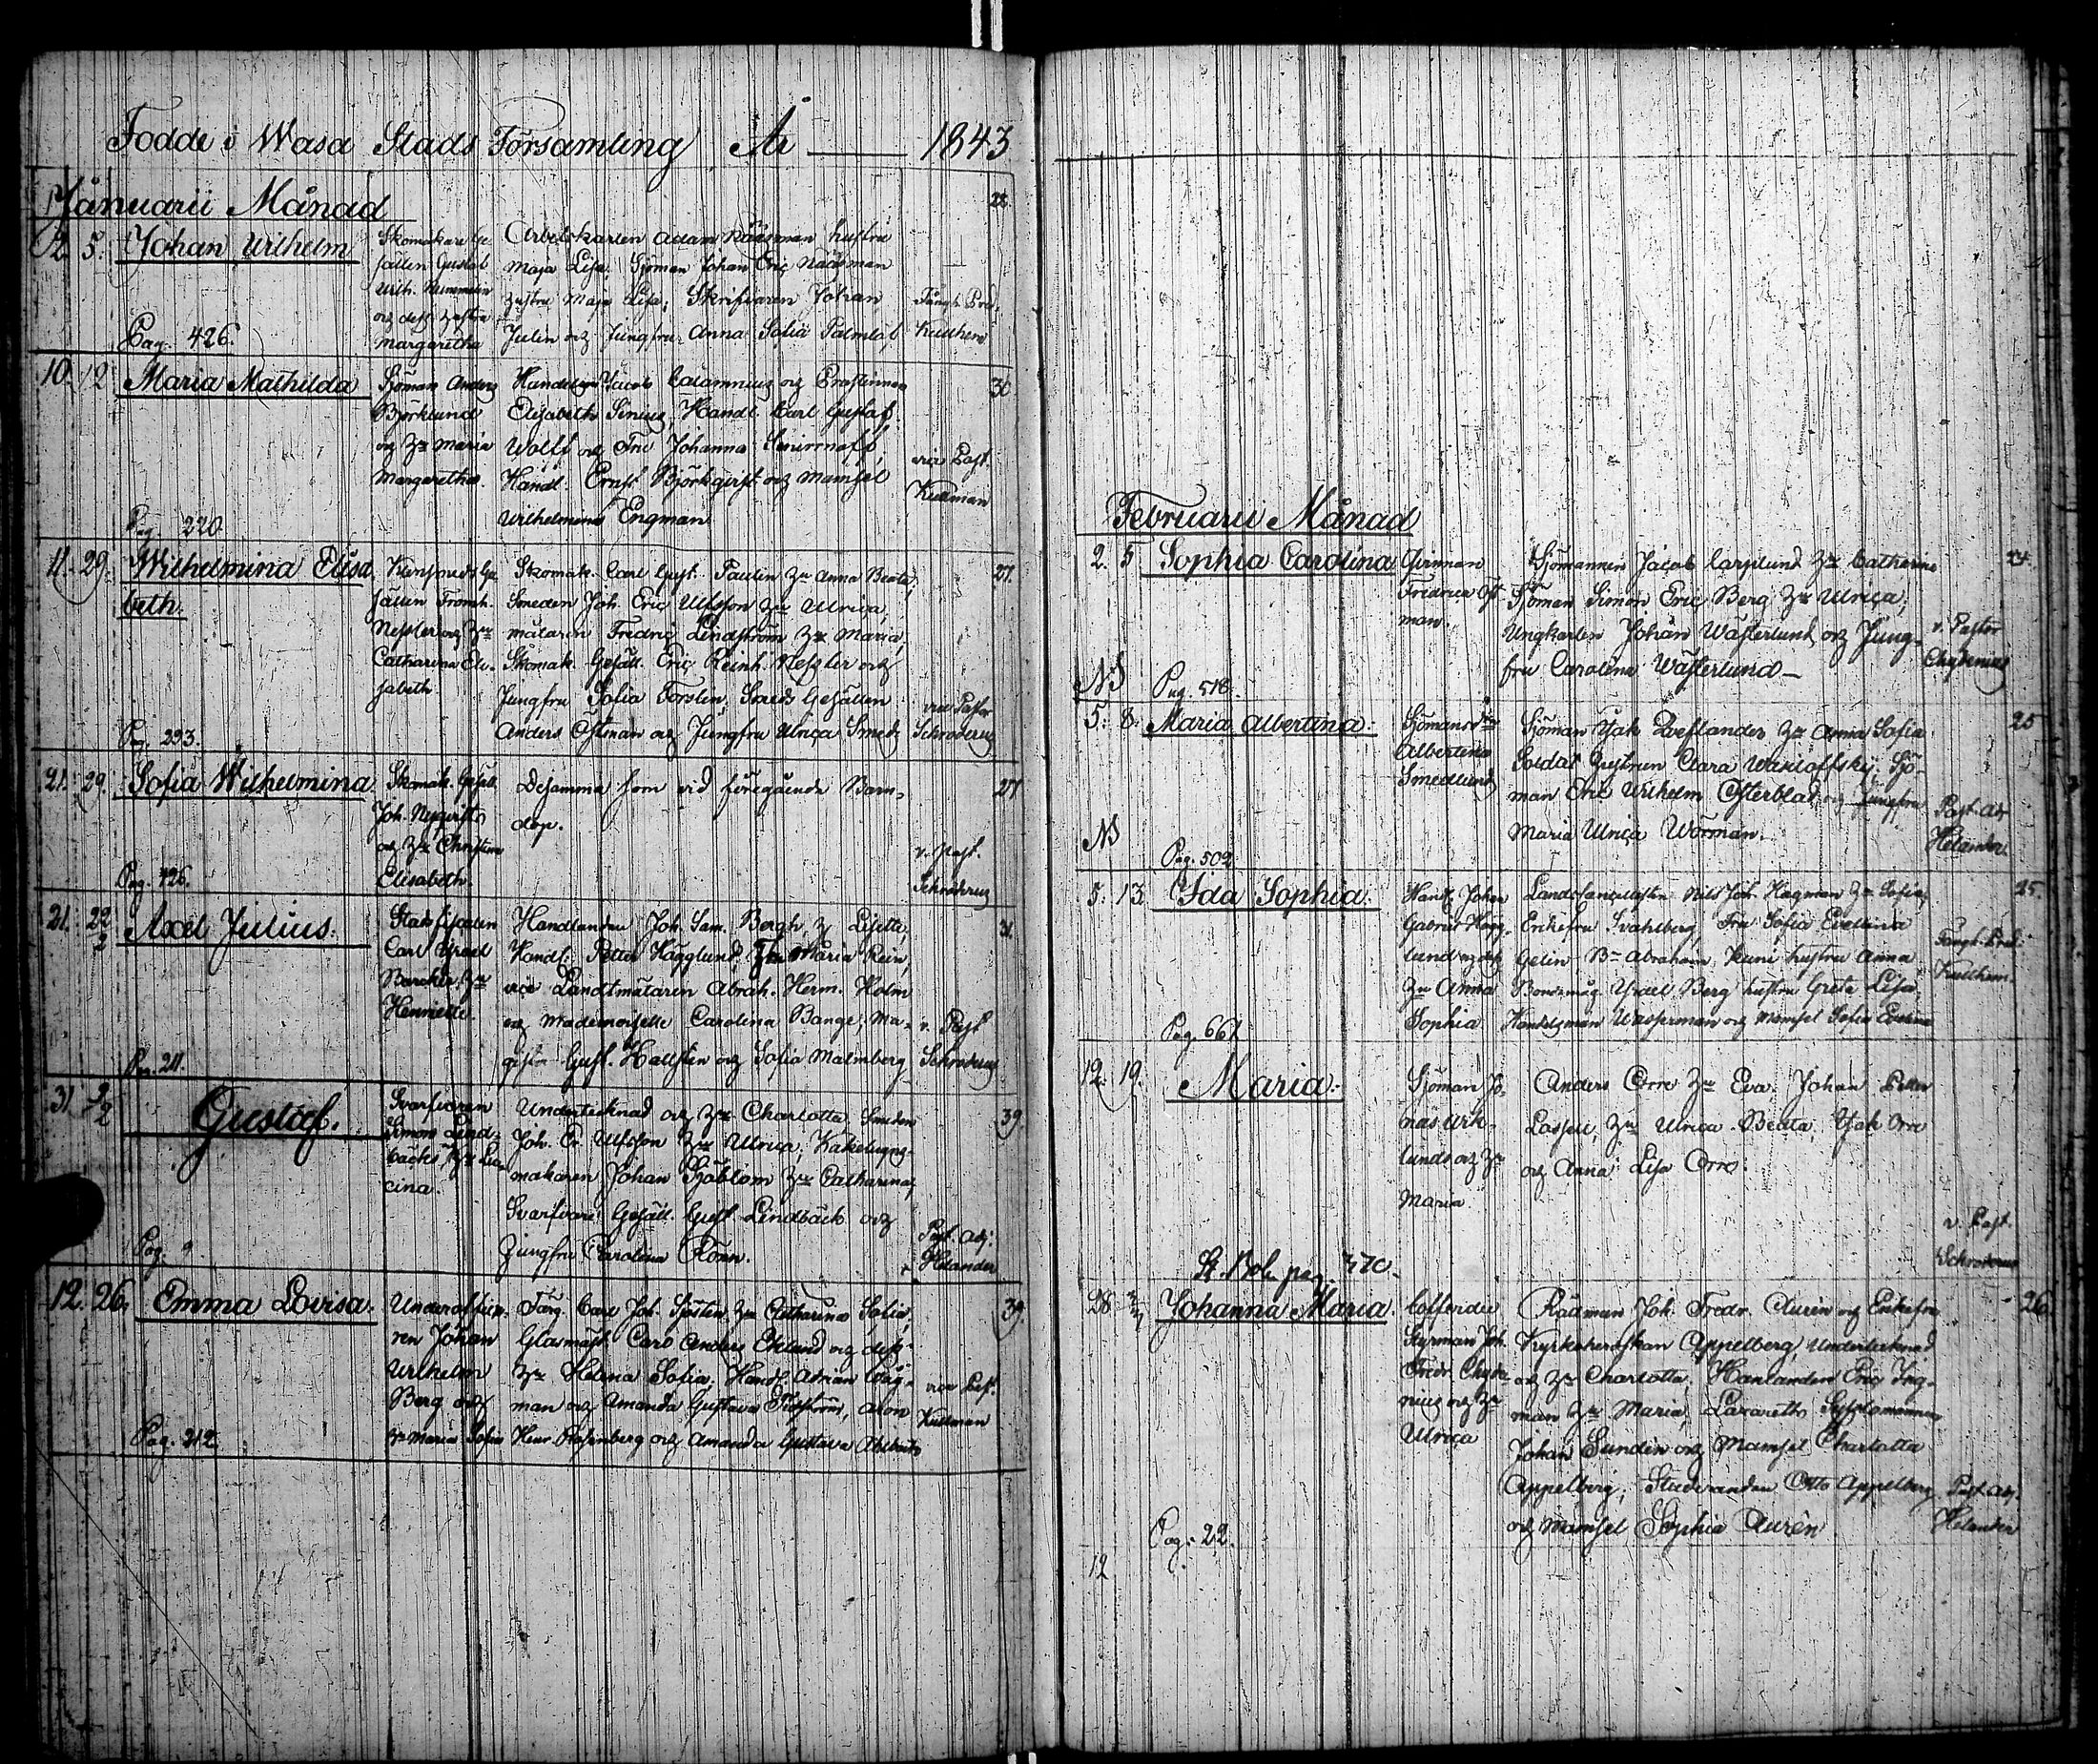 Födde i Wasa Stads Församling År 1843
Januarii Månad
28
2. 5. Johan Wilhelm
Skomakare Ge-
sällen Gustaf
Wilh. Nummelin
och dess hustru
Margaretha
Arbetskarlen Adam Näsman hustru
Maja Lisa, Sjöman Johan Eric Näsman
hustru Maja Lisa; Skrifvaren Johan
Julin och Jungfru Anna Sofia Palmlöf
Fängh. Pred.
Kullhem
Pag. 426.
10. 12 Maria Mathilda
Sjöman Anders
Björklund
och Hu Maria
Margaretha
Handelsm Jacob Calamnius och Prostinnan
Elisabeth Sinius, Handl. Carl Gustaf
Wolff och Fru Johanna
Handl. Ernst Björkqvist och Mamsel
Wilhelmina Engman
vice Past.
Kullman
30
Pag. 220
11. 29. Wilhelmina Elisa
beth.
sällen Fromh.
Nessler och Hu
Catharina Eli-
sabeth.
Skomak. Carl Gust. Paulin Hu Anna Beata,
Smeden Joh. Eric Ulfsson Hu Ulrica,
målaren Fredric Lindström Hu Maria,
Skomak. Gesäll. Eric Reinh. Nessler och
Jungfru Sofia Forsten, Smeds Gesällen
Anders Östman och Jungfru Ulrica Smeds
vice Pastor
Schroderus
27.
Pag. 293.
21. 29. Sofia Wilhelmina
Skomak. Gesäll.
Joh. Nyqvist
och Hu Christina
Elisabeth.
Desamma som vid föregående Barn-
dop.
v. Past.
Schroderus
27
Pag. 426.
21. 22/2 Axel Julius.
Stadsfiscalen
Carl Israel
Barcker Hu
Henriette.
Handlanden Joh. Sam. Bergh H Lisette,
Handl. Petter Hägglund, Hu Maria Rein,
vice Landtmätaren Abrah. Herm. Holm
och Mademoiselle Carolina Bange, Ma-
gister Gust. Hallsten och Sofia Malmberg
v. Past
Schroderus
31.
Pag. 211.
31. 2/2 Gustaf.
Svarfvaren
Simon Lind-
bäck, Hu Lu-
cina.
Undertecknad och Hu Charlotta, Smeden
Joh. Er. Ulfsson Hu Ulrica; Kakelugns-
makaren Johan Sjöblom Hu Catharina;
Svarfvare Gesäll. Gust. Lindbäck och
Jungfru Carolina Rönn.
Past. adj.
Helander
39.
Pag. 9
12. 26. Emma Lovisa.
Underofficer-
ren Johan
Wilhelm
Berg och
Hu Maria Sofia
Färg. Carl Joh. Sjösten Hu Catharina Sofia,
Glasmäst. Carl Anders Eklund och dess
Hu Helena Sofia. Handl. Adrian Wåg-
man och Amanda Gustava Tidström, Alon
Henr. Rosenberg och Amanda Gustava
vice Past.
Kullman
39.
Pag. 212
Februarii Månad
2. 5 Sophia Carolina
Qvinnan
Fredrica Öst-
man.
Sjömannen Jacob Carplund Hu Catherine
Sjöman Simon Eric Berg Hu Ulrica,
Ungkarlen Johan Wästerlund och Jung-
fru Carolina Wästerlund
v. Pastor
Chydenius
24.
NB Pag. 518.
5. 8. Maria Albertina.
Albertina
Smedlund
Sjöman Isak Löfstander Hu Anna Sofia
Soldat hustrun Clara Wasiloffski; Sjö-
man Eric Wilhelm Österblad och Jungfru
Maria Ulrica Wörman.
Past. adj
Helander.
25
NB Pag. 502.
5. 13. Ida Sophia.
Handl. Johan
Gabriel Hägg-
lund och dess
Hu Anna
Sophia
Landscancelisten Nils Joh. Hagman Hu Sofia,
Enkefru Svahlberg, Fru Sofia Evelina
Gelin Bn Abraham Kuni hustru Anna
Bondemåg Israel Berg hustru Greta Lisa.
Handelsman Wasserman och Mamsel Sofia Evelina
Fängh. Pred.
Kullhem.
25.
Pag. 661
12. 19. Maria.
Sjöman Jo-
nas Wik-
lund och Hu
Maria
Anders Orre Hu Eva. Johan Petter
Lassell, Hu Ulrica Beata, Isak Orre
och Anna Lisa Orre.
v. Past.
Schroderus
St. Bok. pag. 370.
28 Johanna Maria.
Cofferdie
Styrman Joh.
Fredr. Chyde-
nius och Hu
Ulrica
Rådman Joh. Fredr. Aurén och Enkefru
Kyrkoherdskan Appelberg, Undertecknad
och Hu Charlotta, Hanlanden Eric Ing-
man Hu Maria, Lazareths Sysslomannen
Johan Sundén och Mamsel Charlotta
Appelberg, Studeranden Otto Appelberg
och Mamsel Sophia Aurén
Past. adj.
Helander
26
Pag. 22.
12